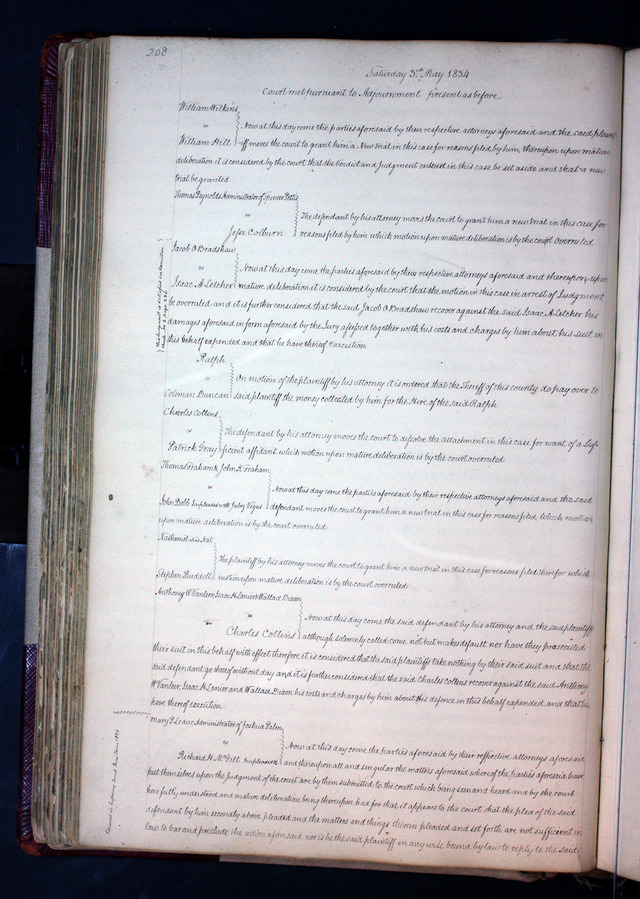 208
Saturday 3rd May 1834
Court met pursuant to Adjournment present as before
William Wilkins
vs
William Hill
Now at this day come the parties aforesaid by their respective attorneys aforesaid and the said plaint-
iff moves the court to grant him a New trial in this case for reasons filed, by him, thereupon upon mature
deliberation it is considered by the court that the Verdict and Judgment entered in this case be set aside and that a new
trial be granted
Thomas Reynolds Administrator of Spencer Pettis
vs
Jesse Colburn
The defendant by his attorney moves the court to grant him a new trial in this case for
reasons filed by him which motion upon mature deliberation is by the court overruled
Jacob O Bradshaw
vs
Isaac A Letcher
Now at this day come the parties aforesaid by their respective attorneys aforesaid and thereupon, upon
mature deliberation it is considered by the court that the motion in this case in arrest of Judgment
be overruled and it is further considered that the said Jacob O Bradshaw recover against the said Isaac A Letcher his
damages aforesaid in form aforesaid by the Jury assessed together with his costs and charges by him about his suit in
this behalf expended and that he have thereof Execution
Ralph
vs
Coleman Duncan
On motion of the plaintiff by his attorney it is ordered that the Sheriff of this county do pay over to
said plaintiff the money collected by him for the Hire of the said Ralph
Charles Collins
vs
Patrick Gray
The defendant by his attorney moves the court to dissolve the attachment in this case for want of a suf-
ficient affidavit which motion upon mature deliberation is by the court overruled
Thomas Graham & John R Graham
vs
John Dobb Impleaded with
Now at this day come the parties aforesaid by their respective attorneys aforesaid and the said
defendant moves the court to grant him a new trial in this case for reasons filed, which motion
upon mature deliberation is by the court overruled
Nathaniel alias Nat
vs
Stephen Ruddell
The plaintiff by his attorney moves the court to grant him a new trial in this case for reasons filed therefor which
motion upon mature deliberation is by the court overruled
Anthony W Vanleer, Isaac H Lanier & Wallace Dixon
vs
Charles Collins
Now at this day come the said defendant by his attorney and the said plaintiffs
although solemnly called come not but makes default nor have they prosecuted
their suit in this behalf with effect therefore it is considered that the said plaintiffs take nothing by their said suit and that the
said defendant go thereof without day and it is further considered that the said Charles Collins recover against the said Anthony
W Vanleer, Isaac H Lanier and Wallace Dixon his costs and charges by him about His defence in this behalf expended and that he
have thereof execution
Mary P Leduc Administrator of Joshua Palen
vs
Richard H McGill Impleaded &c
Now at this day come the parties aforesaid by their respective attorneys aforesaid
and thereupon all and singular the matters aforesaid where of the parties aforesaid have
put themselves upon the judgment of the court are by them submitted to the court which being seen and heard and by the court
here fully understood and mature deliberation being thereupon had for that it appears to the court that the plea of the said
defendant by him secondly above pleaded and the matters and things therein pleaded and set forth are not sufficient in
law to bar and preclude the action aforesaid nor is he the said plaintiff in any wise bound by law to reply to the said